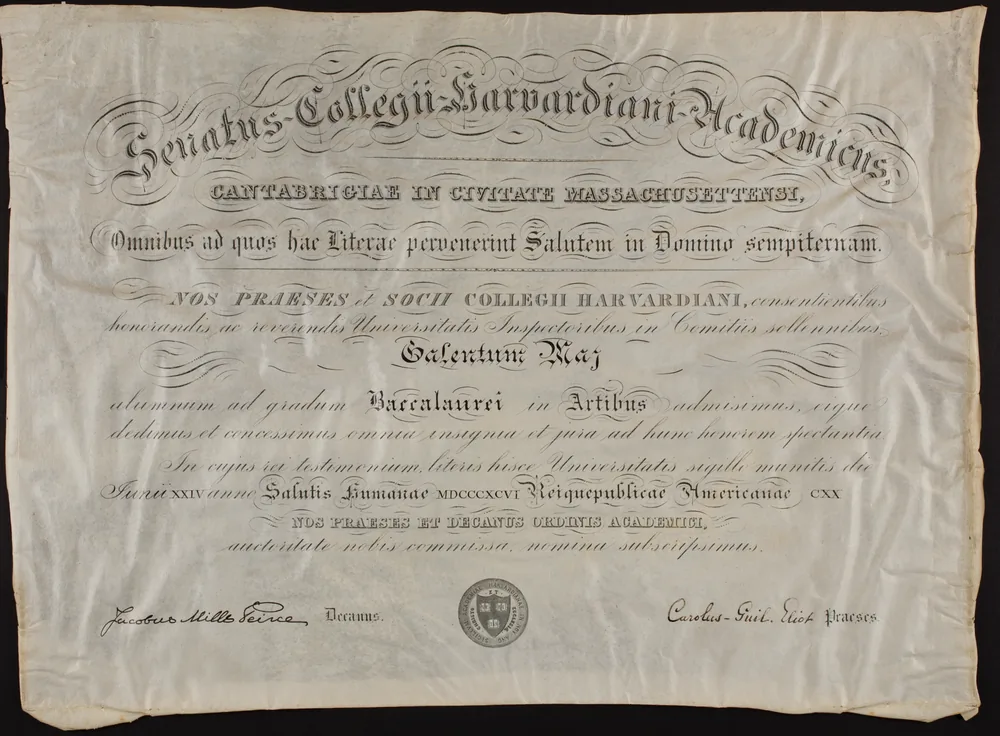 Senatus-Collegii-Harvardiani-Academicus,
CANTABRIGIAE IN CIVITATE MASSACHUSETTENSI,
Omnibus ad quos hae Literae pervenerint Salutem in Domino sempiternam.
NOS PRAESES et SOCII COLLEGII HARVARDIANI, consentientibus
honorandis ac reverendis Universitatis Inspectoribus in Comitiis sollennibus,
Galentum Maj
alumnum ad gradum Baccalaurei in Artibus admisimus, eique
dedimus et concessimus omnia insignia et jura ad hunc honorem spectantia
In cujus rei testimonium, literis hisce Universitatis sigillo munitis die
Junii XXIV anno Salutis Humanae MDCCCXCVI Reiquepublicae Americanae CXX
NOS PRAESES ET DECANUS ORDINIS ACADEMICI,
auctoritate nobis commissa, nomina subscripsimus.
Jacobus Mills Peirce Decanus.
Carolus-Guil. Eliot Praeses